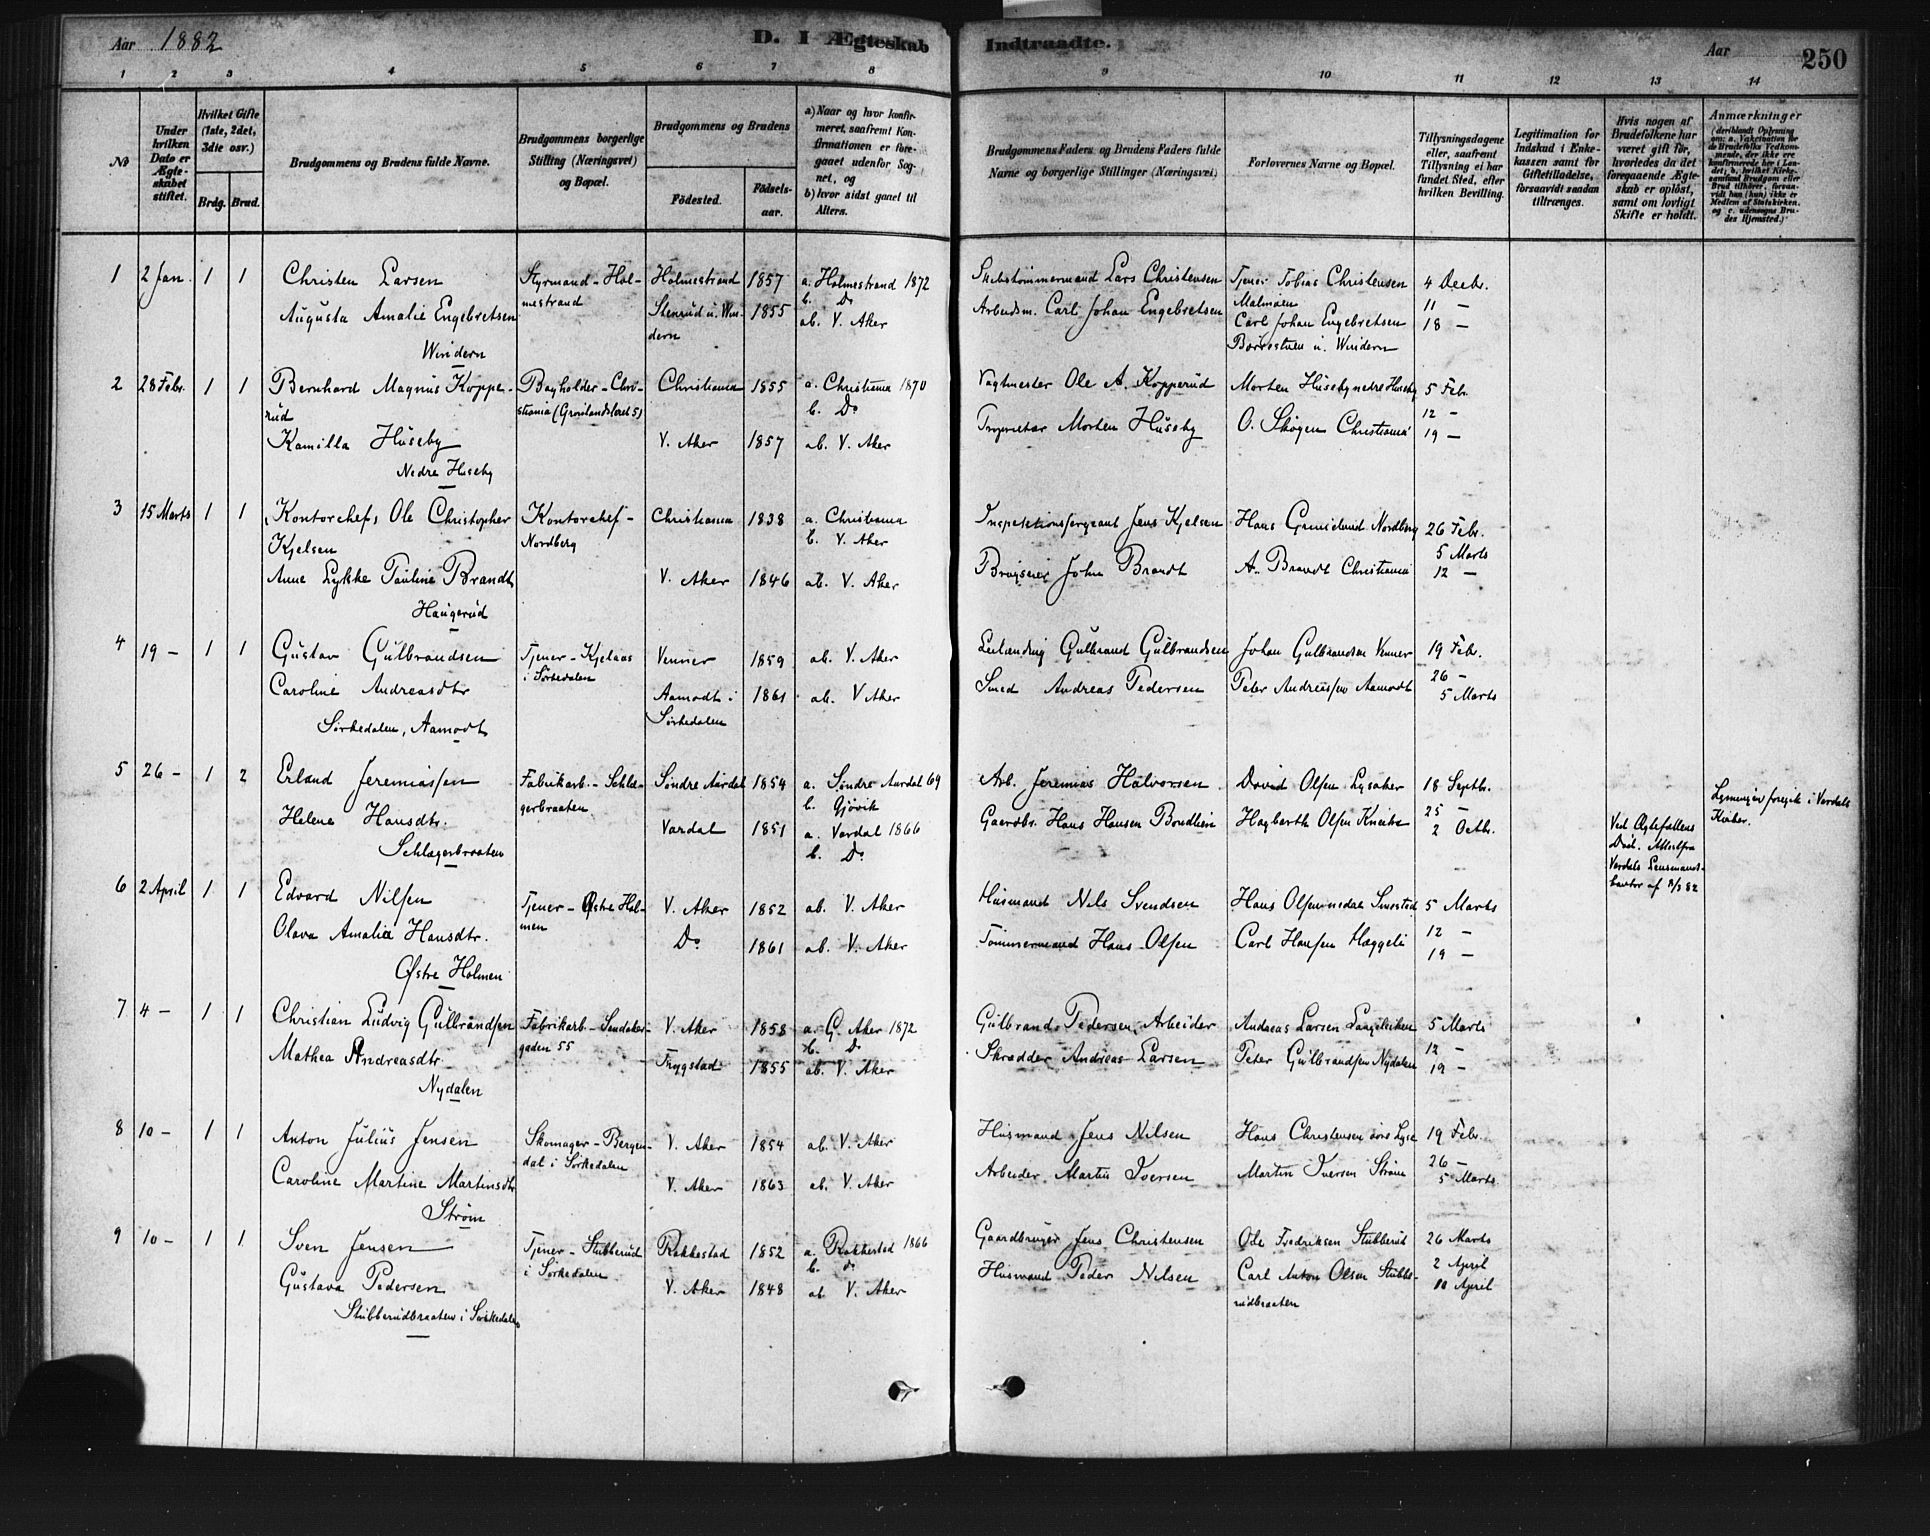 Aar 1882
D. I Ægteskab Indtraadte.
Aar
250
1 2 3 4 5 6 7 8 9 10 11 12 13 14
No
Under hvilken Dato er Ægteskabet stiftet.
Hvilket Gifte (1ste, 2det, 3die osv.)
Brdg. Brud.
Brudgommens og Brudens fulde Navne.
Brudgommens borgerlige Stilling (Næringsvei) og Bopæl.
Brudgommens og Brudens
Fødested.
Fødselsaar.
a) Naar og hvor konfirmeret, saafremt Konfirmationen er foregaaet udenfor Sognet, og
b) hvor sidst gaaet til Alters.
Brudgommens Faders og Brudens Faders fulde Navne og borgerlige Stillinger (Næringsvei)
Forlovernes Navne og Bopæl.
Tillysningsdagene eller, saafremt Tillysning ei har fundet Sted, efter hvilken Bevilling.
Legitimation for Indskud i Enkekassen samt for Giftetilladelse, forsaavidt saadan tiltrænges.
Hvis nogen af Brudefolkene har været gift før, hvorledes da det foregaaende Ægteskab er opløst, samt om lovligt Skifte er holdt.
Anmærkninger
1 2 Jan. 1 1 Christen Larsen Styrmand - Holmestrand Holmestrand 1857 a. Holmestrand 1872 b. Do Lars Christensen Tobias Christensen Malmøen 4 Decbr.
Augusta Amalie Engebretsen Windern Stenrud u. Windern 1855 ab. V. Aker Arbeidsm. Carl Johan Engebretsen Carl Johan Engebretsen u. Windern 11 - 18 -
2 28 Febr. 1 1 Bernhard Magnus Kopperud Bogholder - Christiania (Grønlandsleret 5) Christiania 1855 a. Christiania 1870 b. Do Vagtmester Ole A. Kopperud Morten Huseby nedre Huseby 5 Febr.
Kamilla Huseby Nedre Huseby V. Aker 1857 ab. V. Aker Proprietær Morten Huseby O. Skogen Christiania 12 - 19 -
3 15 Marts 1 1 Kontorchef, Ole Christopher Kjelsen Kontorchef - Nordberg Christiania 1838 a. Christiania b. V. Aker Jens Kjelsen Hans Nordberg 26 Febr.
Anne Lykke Pauline Brandt Haugerud V. Aker 1846 ab. V. Aker John Brandt A. Brandt Christiania 5 Marts 12 -
4 19 - 1 1 Gustav Gulbrandsen Tjener - Kjelaas i Sørkedalen Venner 1859 ab. V. Aker Leilænding Gulbrand Gulbrandsen Johan Gulbrandsen Venner 19 Febr.
Caroline Andreasdtr Sørkedalen, Aamodt Aamodt i Sørkedalen 1861 ab. V Aker Smed Andreas Pedersen Peter Andreassen Aamodt 26 - 5 Marts
5 26 - 1 2 Erland Jeremiassen Fabrikarb. - Schlægerbraaten Søndre Aurdal 1854 a. Søndre Aurdal 69 b. Gjøvik Arb. Jeremias Halvorsen David Olsen Lysaker 18 Septbr.
Helene Hansdtr. Schlægerbraaten Vardal 1851 a. Vardal 1866 b. Do Gaardbr. Hans Hansen Hagbarth Olsen 25 - 2 Octbr. Ved Ægtefællens Død. Attest fra Vardals Lensmandskontor Lysningen foregik i Vardals Kirker.
6 2 April 1 1 Edvard Nilsen Tjener - Østre Holmen V. Aker 1852 ab. V. Aker Husmand Nils Svendsen Hans Olsen 5 Marts
Olava Amalie Hansdtr. Østre Holmen Do 1861 ab. V. Aker Tømmermand Hans Olsen Carl Hansen 12 - 19 -
7 4 - 1 1 Christian Ludvig Gulbrandsen Fabrikarb. - Sandakergaden 55 V. Aker 1858 a. G. Aker 1872 b. Do Gulbrand Pedersen, Arbeider Andreas Larsen 5 Marts
Mathea Andreasdtr. Nydalen Trygstad 1855 ab. V. Aker Skrædder Andreas Larsen Peter Gulbrandsen Nydalen 12 - 19 -
8 10 - 1 1 Anton Julius Jensen Skomager - Bergendal i Sørkedalen V. Aker 1854 ab. V. Aker Husmand Jens Nilsen Hans Christensen 19 Febr.
Caroline Martine Martinsdtr Strøm V. Aker 1863 ab. V. Aker Arbeider Martin Iversen Martin Iversen Strøm 26 - 5 Marts
9 10 - 1 1 Sven Jensen Tjener - Stubberud i Sørkedalen Rakkestad 1852 a. Rakkestad 1866 b. do Gaardbruger Jens Christensen Ole Fredriksen Stubberud 26 Marts
Gustava Pedersen Stubberudbraaten i Sørkedalen V. Aker 1848 ab V. Aker Husmand Peder Nilsen Carl Anton Olsen Stubberudbraaten 2 April 10 April